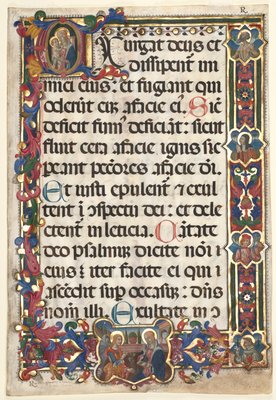 R
Exurgat deus et
dissipentur ini
mici eius: et fugiant qui
oderunt eum a facie ei. Sic
deficit fum9 deficiāt: sicut
fluit cera a facie ignis sic
pereant peccōres a facie dei.
Et iusti epulent et exul
tent ī ɔspectu dei: et dele
ctentur in leticia. Cātate
deo psalmum dicite nōi e
eius: iter facite ei qui a
ascēdit sup occasuȝ: dn̄s
nomē illi. Exultate in ɔ